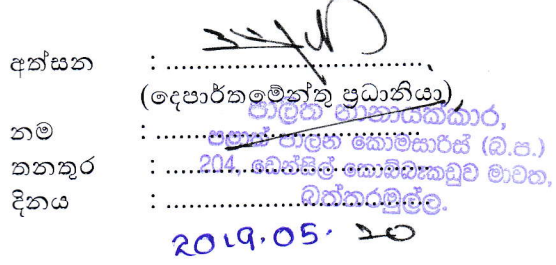 අත්සන : ..........................................
(දෙපාර්තමේන්තු ප්‍රධානියා)
පාලිත නානායක්කාර,
නම : ..........................................
පළාත් පාලන කොමසාරිස් (බ.ප.)
තනතුර : ..........................................
204, ඩෙන්සිල් කොබ්බෑකඩුව මාවත,
දිනය : ..........................................
බත්තරමුල්ල.
2019.05.20